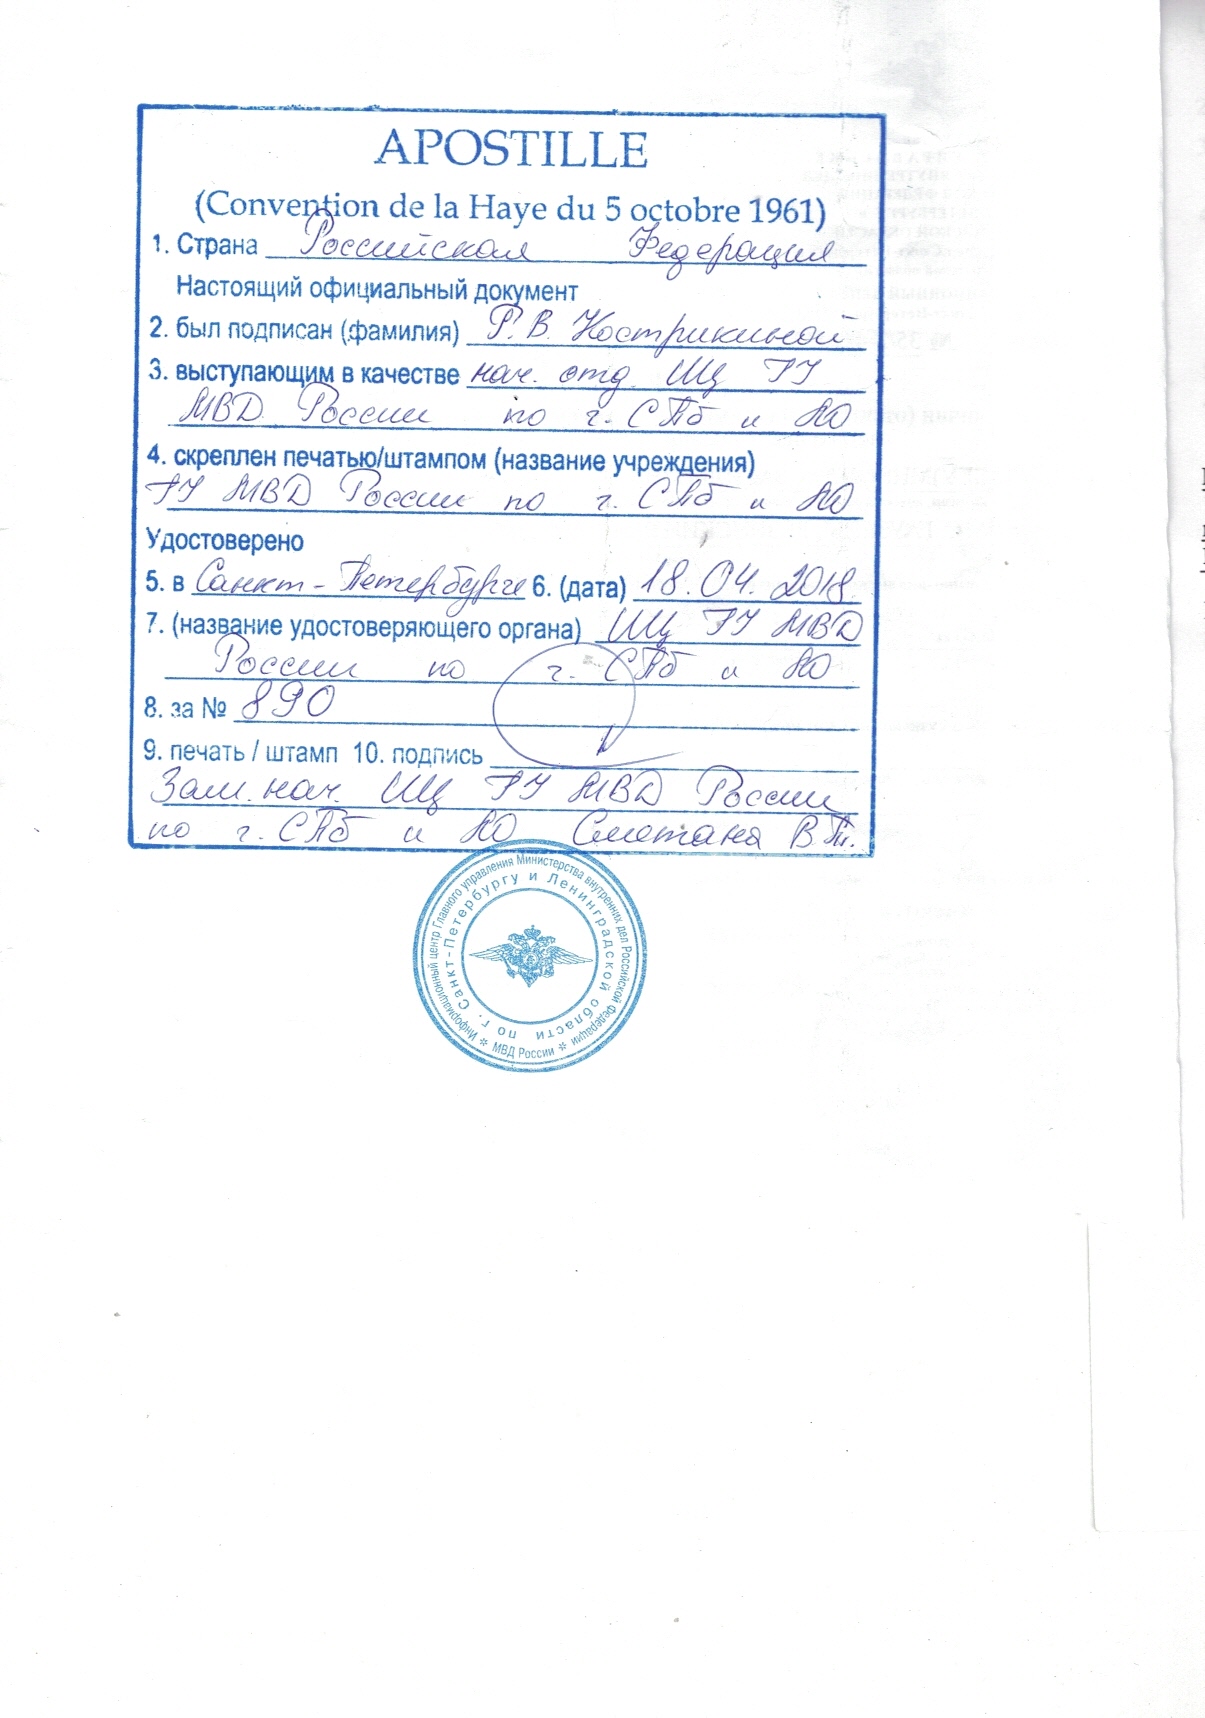 APOSTILLE
(Convention de la Haye du 5 octobre 1961)
1. Страна Российская Федерация
Настоящий официальный документ
2. был подписан (фамилия) Р.В. Кострикиной
3. выступающим в качестве нач. отд. ИЦ ГУ
МВД России по г. СПб и ЛО
4. скреплен печатью/штампом (название учреждения)
ГУ МВД России по г. СПб и ЛО
Удостоверено
5. в Санкт-Петербурге 6. (дата) 18.04.2018
7. (название удостоверяющего органа) ИЦ ГУ МВД
России по г. СПб и ЛО
8. за № 890
9. печать / штамп 10. подпись
Зам. нач. ИЦ ГУ МВД России
по г. СПб и ЛО Сметана В.Т.
Информационный центр Главного управления Министерства внутренних дел Российской Федерации
по г. Санкт-Петербургу и Ленинградской области
* МВД России *